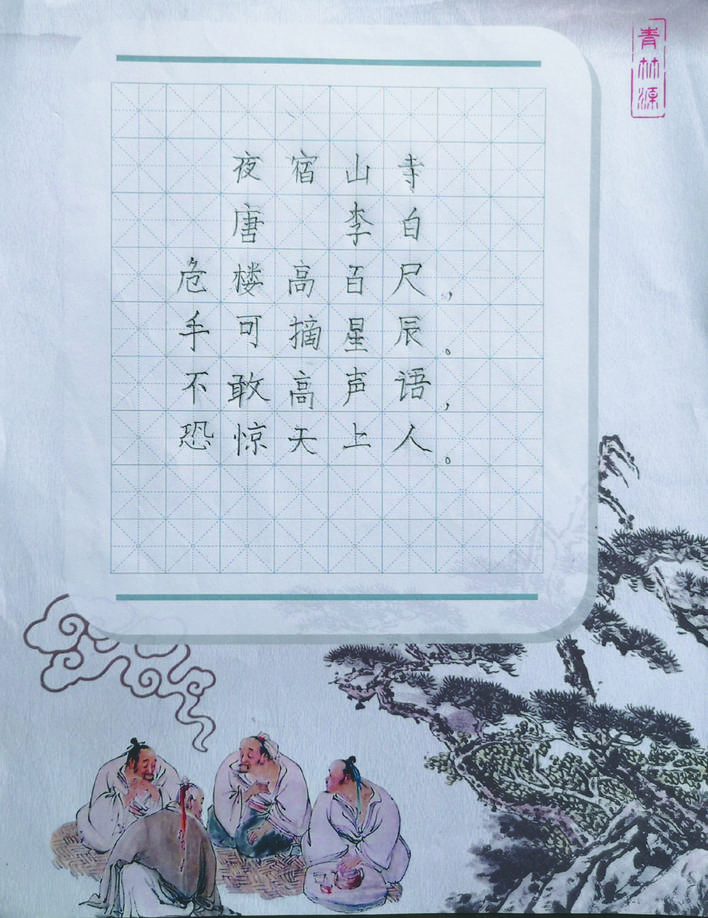 青林源
夜宿山寺
唐 李白
危楼高百尺，
手可摘星辰。
不敢高声语，
恐惊天上人。